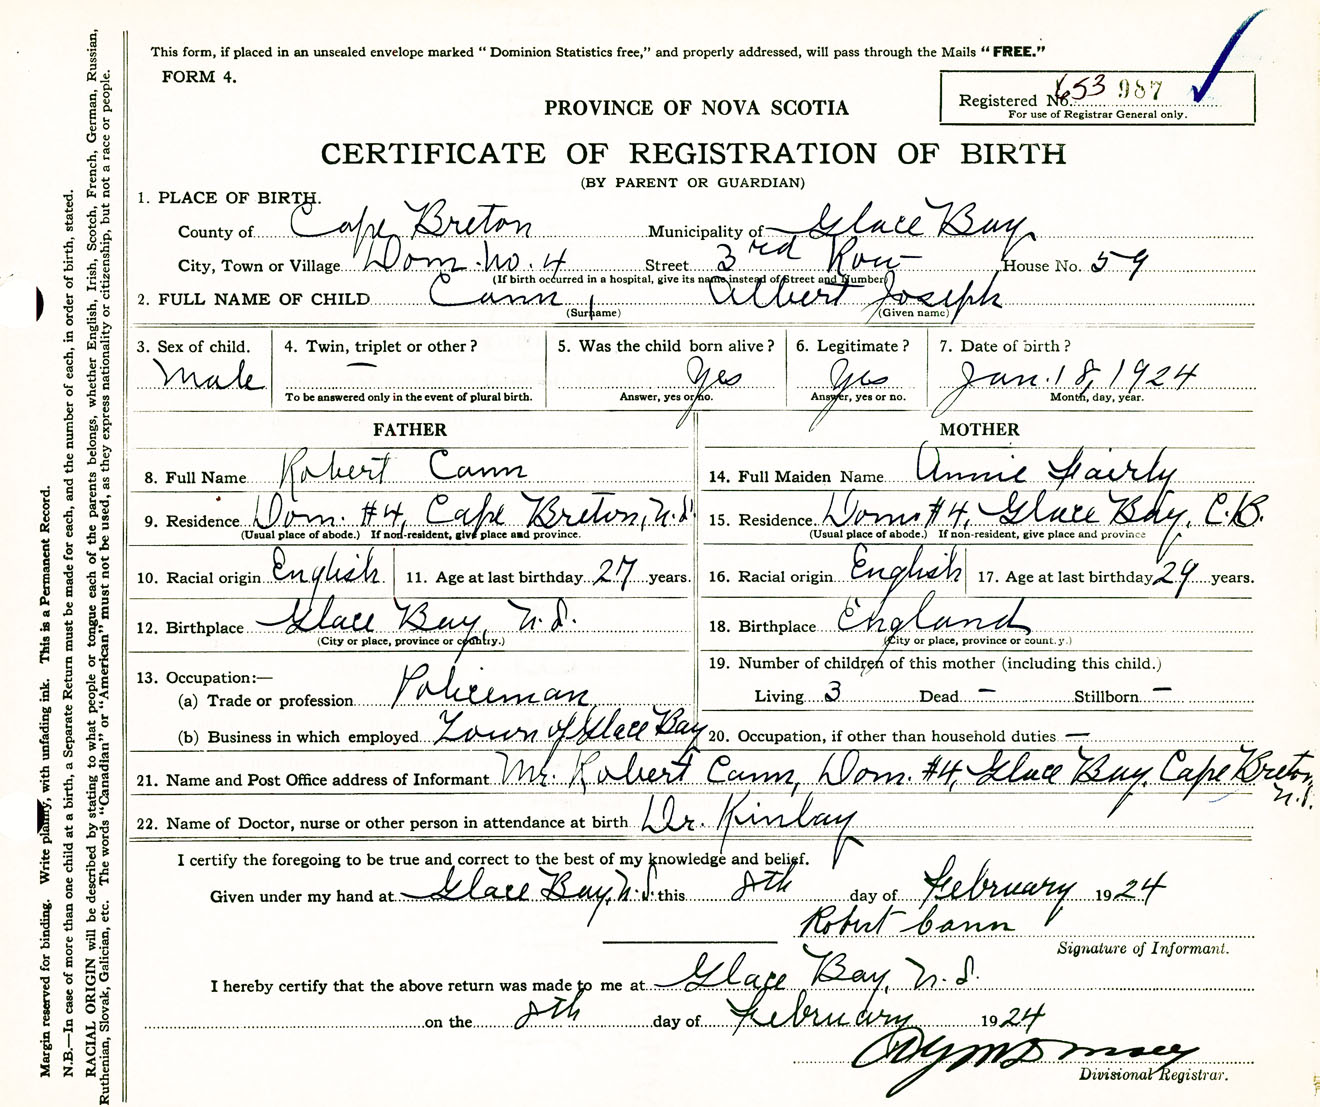 This form, if placed in an unsealed envelope marked “ Dominion Statistics free,” and properly addressed, will pass through the Mails “ FREE.”
FORM 4.
Registered No. 653 987
For use of Registrar General only.
PROVINCE OF NOVA SCOTIA
CERTIFICATE OF REGISTRATION OF BIRTH
(BY PARENT OR GUARDIAN)
1. PLACE OF BIRTH.
County of Cape Breton Municipality of Glace Bay
City, Town or Village Dom. No. 4 Street 3rd Row House No. 59
(If birth occurred in a hospital, give its name instead of Street and Number)
2. FULL NAME OF CHILD Cann, Albert Joseph
(Surname) (Given name)
3. Sex of child. 4. Twin, triplet or other ? 5. Was the child born alive ? 6. Legitimate ? 7. Date of birth ?
Male — Yes Yes Jan. 18, 1924
To be answered only in the event of plural birth. Answer, yes or no. Answer, yes or no. Month, day, year.
FATHER MOTHER
8. Full Name Robert Cann 14. Full Maiden Name Annie Fairly
9. Residence Dom. #4, Cape Breton, N.S. 15. Residence Dom #4, Glace Bay, C.B.
(Usual place of abode.) If non-resident, give place and province. (Usual place of abode.) If non-resident, give place and province
10. Racial origin English 11. Age at last birthday 27 years. 16. Racial origin English 17. Age at last birthday 29 years.
12. Birthplace Glace Bay, N.S. 18. Birthplace England
(City or place, province or country.) (City or place, province or country.)
13. Occupation:— 19. Number of children of this mother (including this child.)
(a) Trade or profession Policeman Living 3 Dead — Stillborn —
(b) Business in which employed Town of Glace Bay 20. Occupation, if other than household duties —
21. Name and Post Office address of Informant Mr. Robert Cann, Dom. #4, Glace Bay, Cape Breton, N.S.
22. Name of Doctor, nurse or other person in attendance at birth Dr. Kinlay
I certify the foregoing to be true and correct to the best of my knowledge and belief.
Given under my hand at Glace Bay, N.S. this 8th day of February 1924
Robert Cann
Signature of Informant.
I hereby certify that the above return was made to me at Glace Bay, N.S.
on the 8th day of February 1924
Divisional Registrar.
Margin reserved for binding. Write plainly, with unfading ink. This is a Permanent Record.
N.B.—In case of more than one child at a birth, a Separate Return must be made for each, and the number of each, in order of birth, stated.
RACIAL ORIGIN will be described by stating to what people or tongue each of the parents belongs, whether English, Irish, Scotch, French, German, Russian,
Ruthenian, Slovak, Galician, etc. The words “Canadian” or “American” must not be used, as they express nationality or citizenship, but not a race or people.